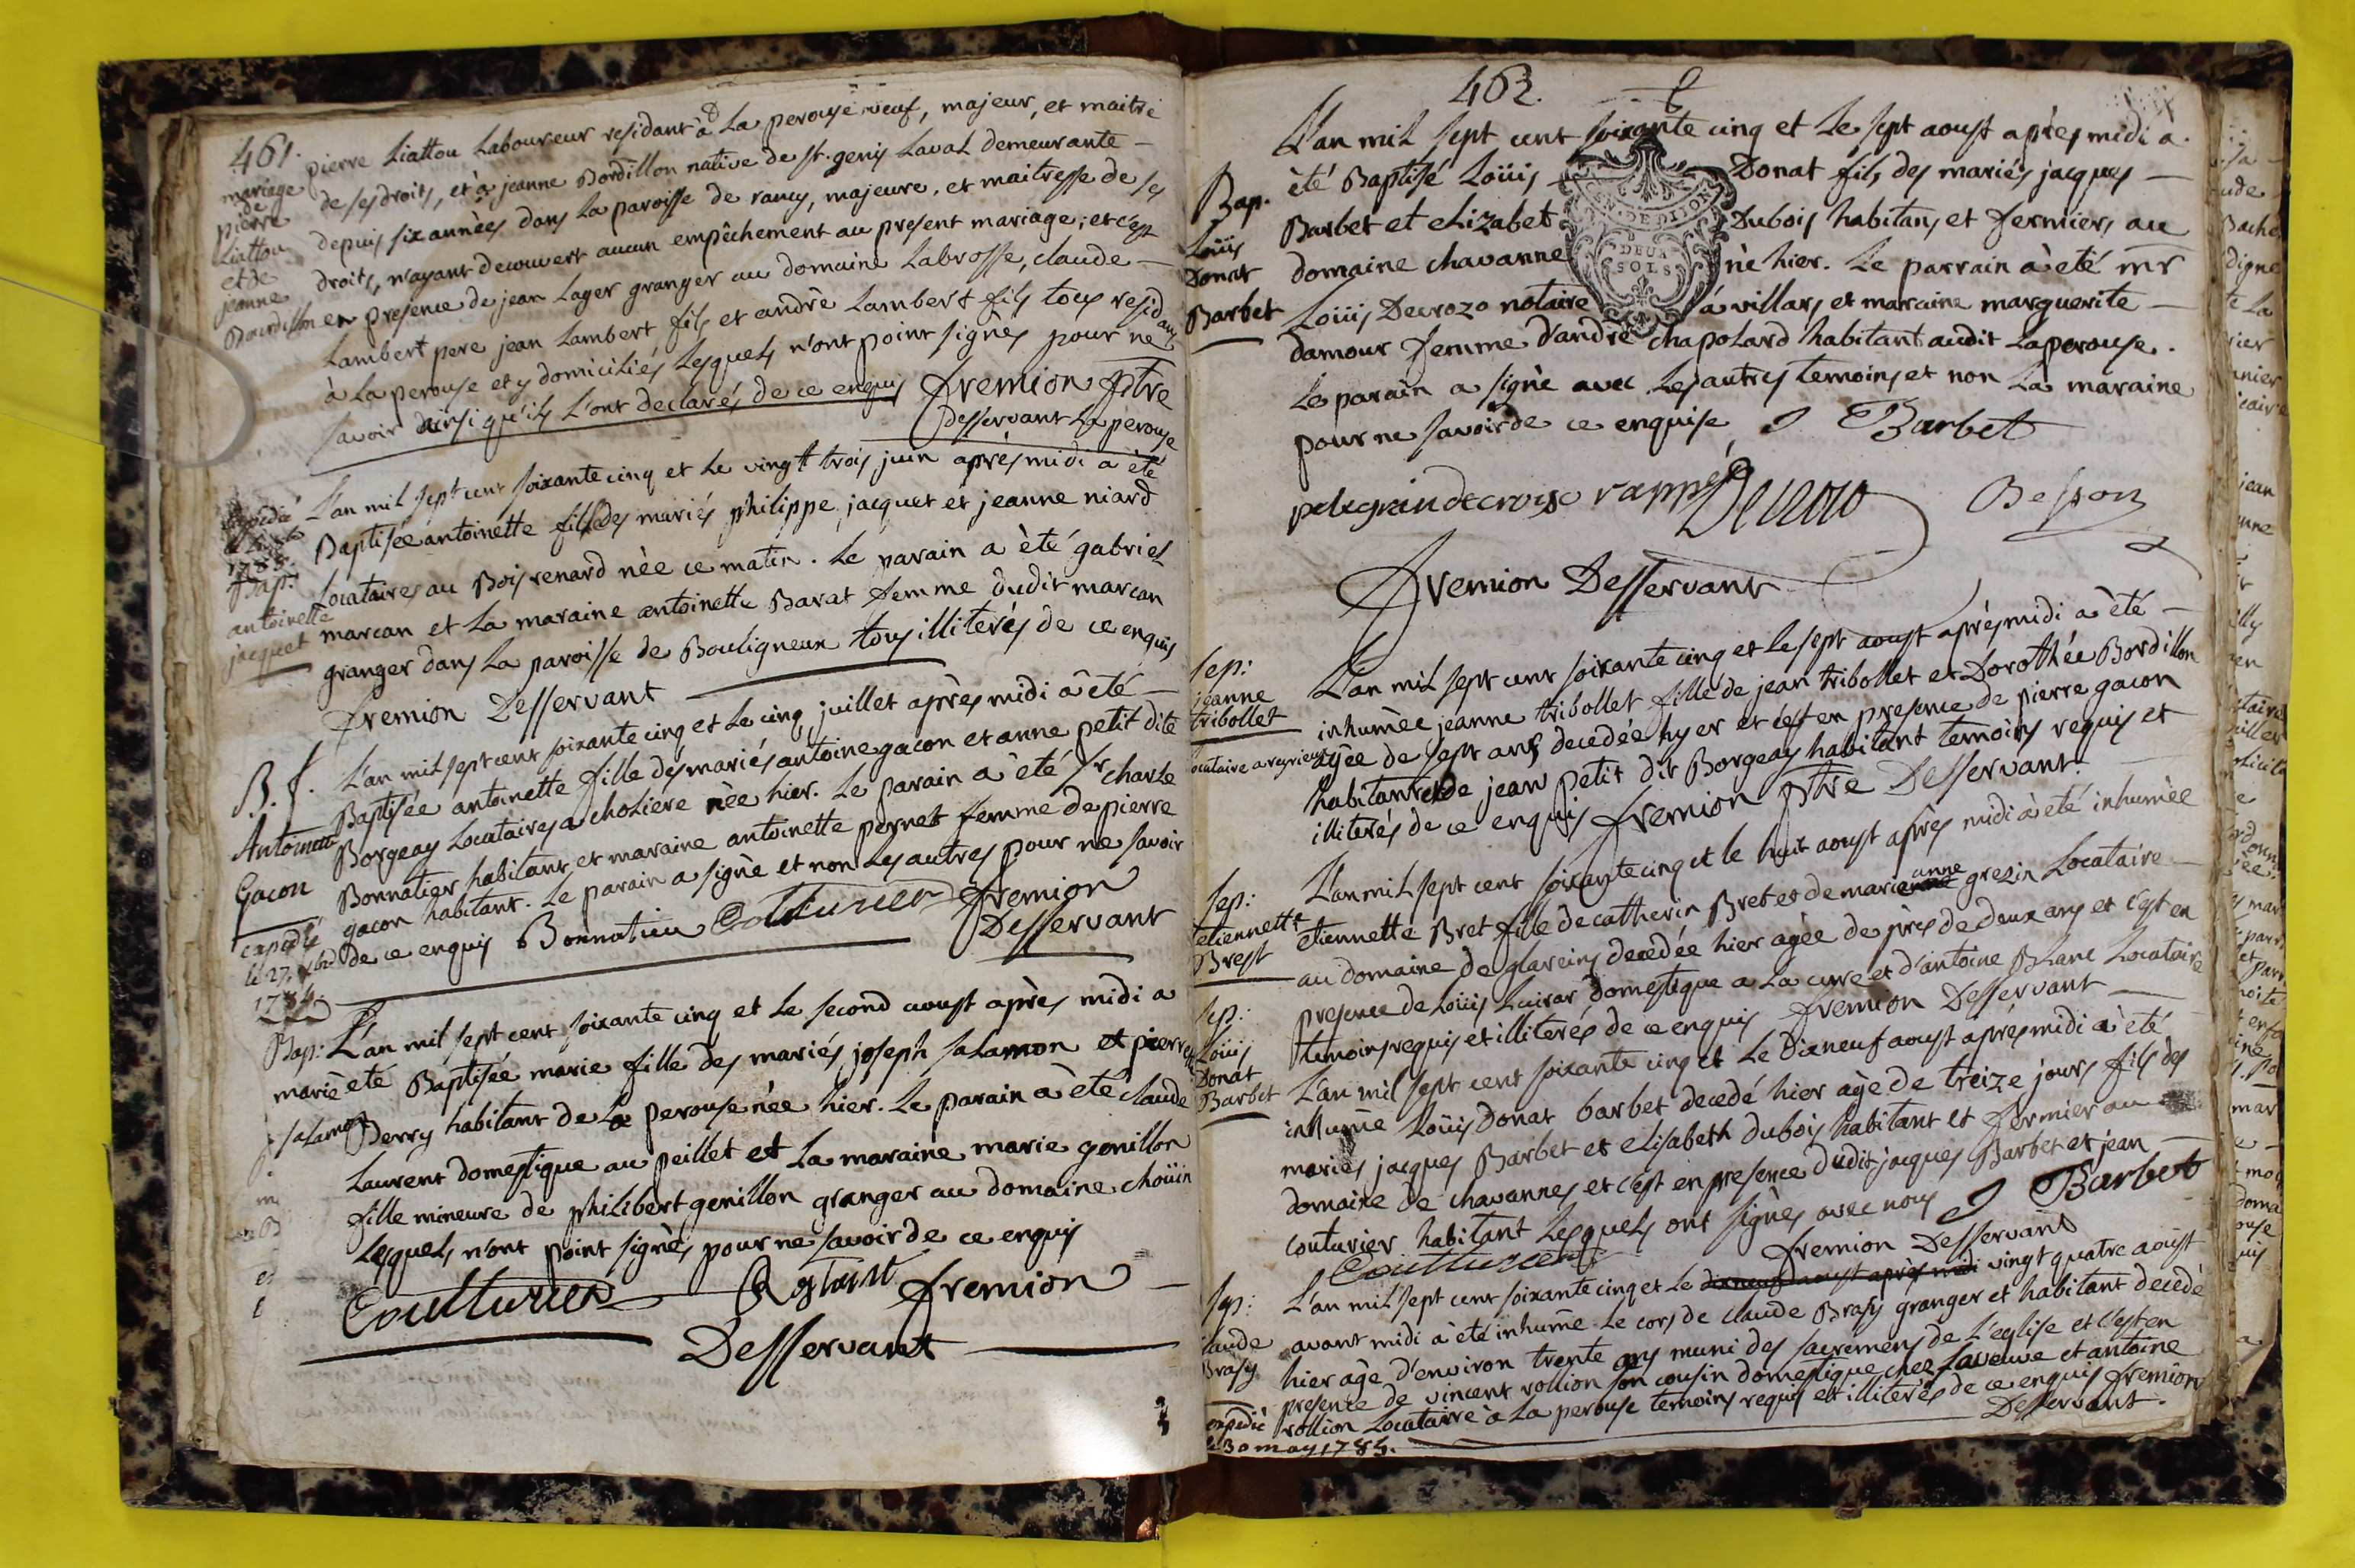 461.
mariage
de
pierre
Liattou
et de
jeanne
Bourdillon
pierre Liattou Laboureur residant à La perouse veuf, majeur, et maitre
de ses droits, et à jeanne Bordillon native de st. genis Laval demeurante
depuis six années dans La paroisse de rancy, majeure, et maitresse de ses
droits, n'ayant decouvert aucun empêchement au present mariage; et c'est
en presence de jean Lager granger au domaine Labrosse, claude
Lambert pere jean Lambert fils et andrè Lambert fils tous residans
à La perouse et y domiciliés Lesquels n'ont point signés pour ne
savoir ainsi qu'ils L'ont declarés de ce enquis fremion ptre
Desservant La perouse
1785.
Bap.
antoinette
jacquet
L'an mil sept cent soixante cinq et Le vingt trois juin après midi a été
Baptisée antoinette fille des mariés philippe jacquet et jeanne niard
Locataires au Bois renard nèe ce matin. Le parain a èté gabriel
marcan et La maraine antoinette Barat femme dudit marcan
granger dans La paroisse de Bouligneux tous illiterés de ce enquis
fremion Desservant
B. f.
Antoinette
Gacon
expedié
le 27. xbre
1784
L'an mil sept cent soixante cinq et Le cinq juillet après midi à été
Baptisée antoinette fille des mariés antoine gacon et anne petit dite
Borgeay Locataires a choliere nèe hier. Le parain a été sr charle
Bonnatier habitant, et maraine antoinette pernet femme de pierre
gacon habitant. Le parain a signè et non Les autres pour ne savoir
de ce enquis Bonnatieu Coulturier fremion
Desservant
Bap:
marie
salamon
L'an mil sept cent soixante cinq et Le second aoust après midi a
été Baptisée marie fille des mariés joseph salamon et pierrette
Derry habitant de La perouse née hier. Le parain a èté claude
Laurent domestique au peillet et La maraine marie genillon
fille mineure de philibert genillon granger au domaine choüin
Lesquels n'ont point signès pour ne savoir de ce enquis
Coulturier fremion
Desservant
462.
EN. DE DIJON
DEUX
SOLS
Bap.
Loüis
Donat
Barbet
L'an mil sept cent soixante cinq et Le sept aoust après midi a
été Baptisé Loüis Donat fils des mariés jacques
Barbet et elizabet Dubois habitans et fermiers au
domaine chavanne nè hier. Le parrain à eté mr
Loüis Decrozo notaire à villars et maraine marguerite
damour femme d'andrè chapolard habitant audit Laperouse.
Le parain a signè avec Les autres temoins et non La maraine
pour ne savoir de ce enquise J Barbet
Besson
fremion Desservant
Sep:
jeanne
tribollet
L'an mil sept cent soixante cinq et Le sept aoust après midi à èté
inhumèe jeanne tribollet fille de jean tribollet et Dorothée Bordillon
agèe de sept ans decedée hyer et c'est en presence de pierre gacon
habitant et de jean petit dit Borgeay habitant temoins requis et
illiterés de ce enquis fremion ptre Desservant.
Sep:
etiennette
Brest
L'an mil sept cent soixante cinq et le huit aoust après midi à été inhumèe
etiennette Bret fille de catherin Bret et de marie anne grezin Locataire
au domaine de glareins decedée hier agée de près de deux ans et c'est en
presence de Loüis Luirar domestique a La cure et d'antoine Blanc Locataire
temoins requis et illiterés de ce enquis fremion Desservant
Sep:
Loüis
Donat
Barbet
L'an mil sept cent soixante cinq et Le dixneuf aoust après midi à èté
inhumè Loüis Donat barbet decedé hier agè de treize jours fils des
mariés jacques Barbet et elisabeth dubois habitant et fermier au
domaine de chavannes et c'est en presence dudit jacques Barbet et jean
couturier habitant Lesquels ont signès avec nous J Barbet
Coulturier fremion Desservant
Sep:
claude
Brasy
expediè
le 30 may 1784.
L'an mil sept cent soixante cinq et Le dixneuf aoust après midi vingt quatre aoust
avant midi à èté inhumè Le cors de claude Brasy granger et habitant decedè
hier agè d'environ trente ans muni des sacremens de L'eglise et c'est en
presence de vincent rollion son cousin domestique chez La veuve et antoine
rollion Locataire à La perouse temoins requis et illiterés de ce enquis fremion
Desservant.